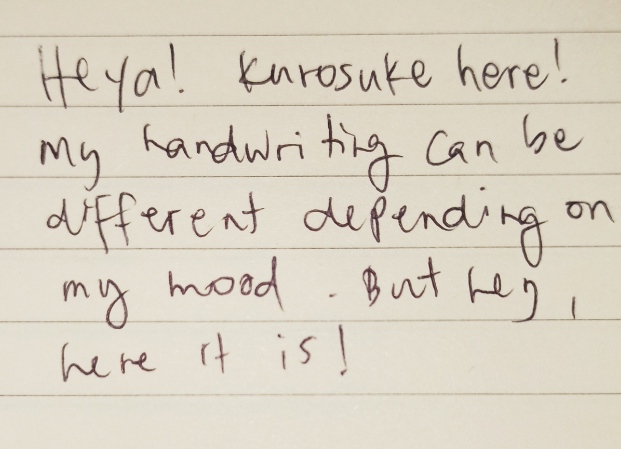 Heya! Kurosuke here!
My handwriting can be
different depending on
my mood. But hey,
here it is!